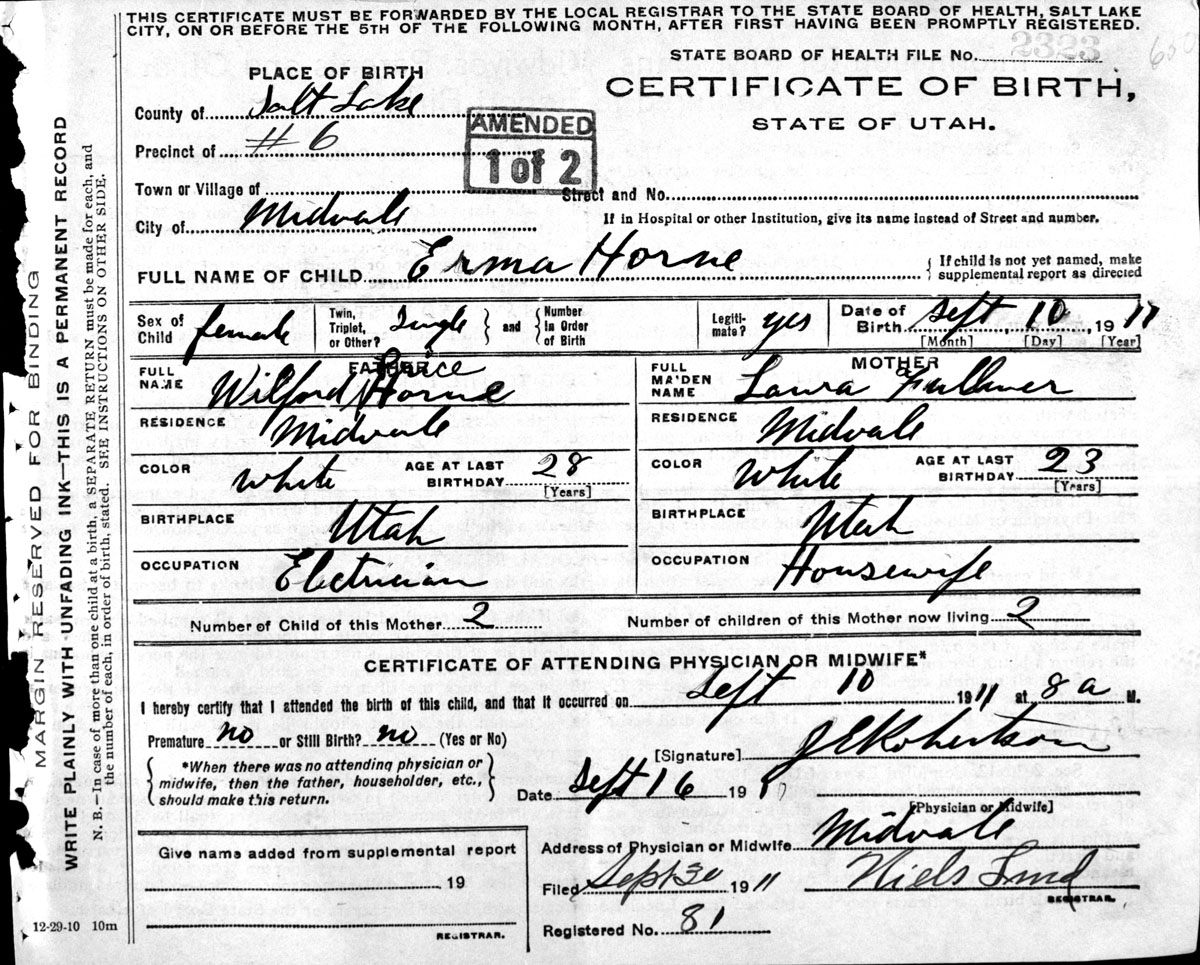 THIS CERTIFICATE MUST BE FORWARDED BY THE LOCAL REGISTRAR TO THE STATE BOARD OF HEALTH, SALT LAKE
CITY, ON OR BEFORE THE 5TH OF THE FOLLOWING MONTH, AFTER FIRST HAVING BEEN PROMPTLY REGISTERED.
STATE BOARD OF HEALTH FILE No. 2323
CERTIFICATE OF BIRTH,
STATE OF UTAH.
PLACE OF BIRTH
County of Salt Lake
Precinct of #6
AMENDED
1 of 2
Town or Village of
Street and No.
City of Midvale
If in Hospital or other Institution, give its name instead of Street and number.
FULL NAME OF CHILD Erma Horne
{ If child is not yet named, make
supplemental report as directed
Sex of Child female
Twin, Triplet, or Other? Single } and { Number In Order of Birth
Legitimate? yes
Date of Birth Sept, 10, 1911
[Month] [Day] [Year]
FATHER
FULL NAME Wilford Price Horne
RESIDENCE Midvale
COLOR White AGE AT LAST BIRTHDAY 28
[Years]
BIRTHPLACE Utah
OCCUPATION Electrician
MOTHER
FULL MAIDEN NAME Laura Fulkner
RESIDENCE Midvale
COLOR White AGE AT LAST BIRTHDAY 23
[Years]
BIRTHPLACE Utah
OCCUPATION Housewife
Number of Child of this Mother 2 Number of children of this Mother now living 2
CERTIFICATE OF ATTENDING PHYSICIAN OR MIDWIFE*
I hereby certify that I attended the birth of this child, and that it occurred on Sept 10 1911 at 8a M.
Premature no or Still Birth? no (Yes or No)
[Signature] J E Robertson
{ *When there was no attending physician or
midwife, then the father, householder, etc.,
should make this return. }
Date Sept 16 19
[Physician or Midwife]
Address of Physician or Midwife Midvale
Give name added from supplemental report
19
REGISTRAR.
Filed Sept 30 1911 Niels Lind
REGISTRAR.
Registered No. 81
12-29-10 10m
MARGIN RESERVED FOR BINDING
WRITE PLAINLY WITH UNFADING INK—THIS IS A PERMANENT RECORD
N. B.—In case of more than one child at a birth, a SEPARATE RETURN must be made for each, and
the number of each, in order of birth, stated. SEE INSTRUCTIONS ON OTHER SIDE.